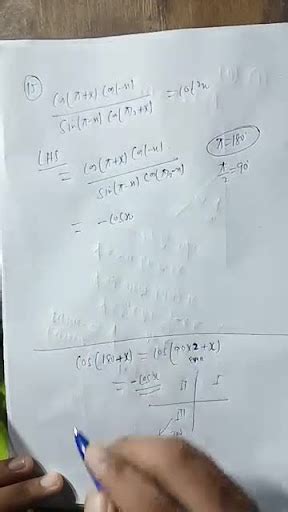 15
cos(π+x) cos(-x)
sin(π-x) cos(π/2+x) = cot²x
LHS
= cos(π+x) cos(-x)
sin(π-x) cos(π/2-x)
π=180°
π/2=90°
= -cosx
cos(180+x) = cos(90x2+x)
= -cosx
II I
III